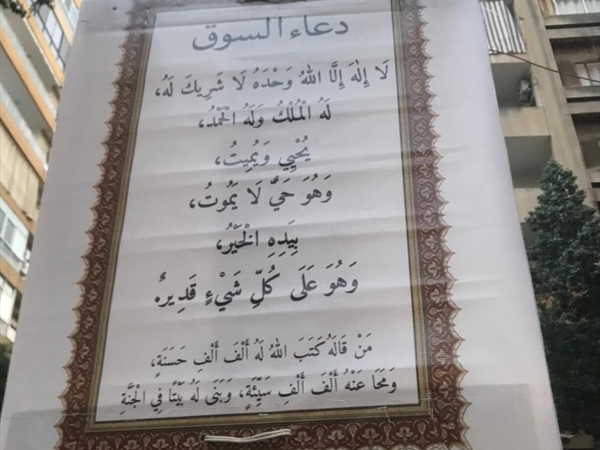 دعاء السوق
لَا إِلٰهَ إِلَّا اللهُ وَحْدَهُ لَا شَرِيكَ لَهُ،
لَهُ الْمُلْكُ وَلَهُ الْحَمْدُ،
يُحْيِي وَيُمِيتُ،
وَهُوَ حَيٌّ لَا يَمُوتُ،
بِيَدِهِ الْخَيْرُ،
وَهُوَ عَلَى كُلِّ شَيْءٍ قَدِيرٌ.
مَنْ قَالَهُ كَتَبَ اللهُ لَهُ أَلْفَ أَلْفِ حَسَنَة،
وَمَحَا عَنْهُ أَلْفَ أَلْفِ سَيِّئَةٍ، وَبَنَى لَهُ بَيْتًا فِي الْجَنَّةِ